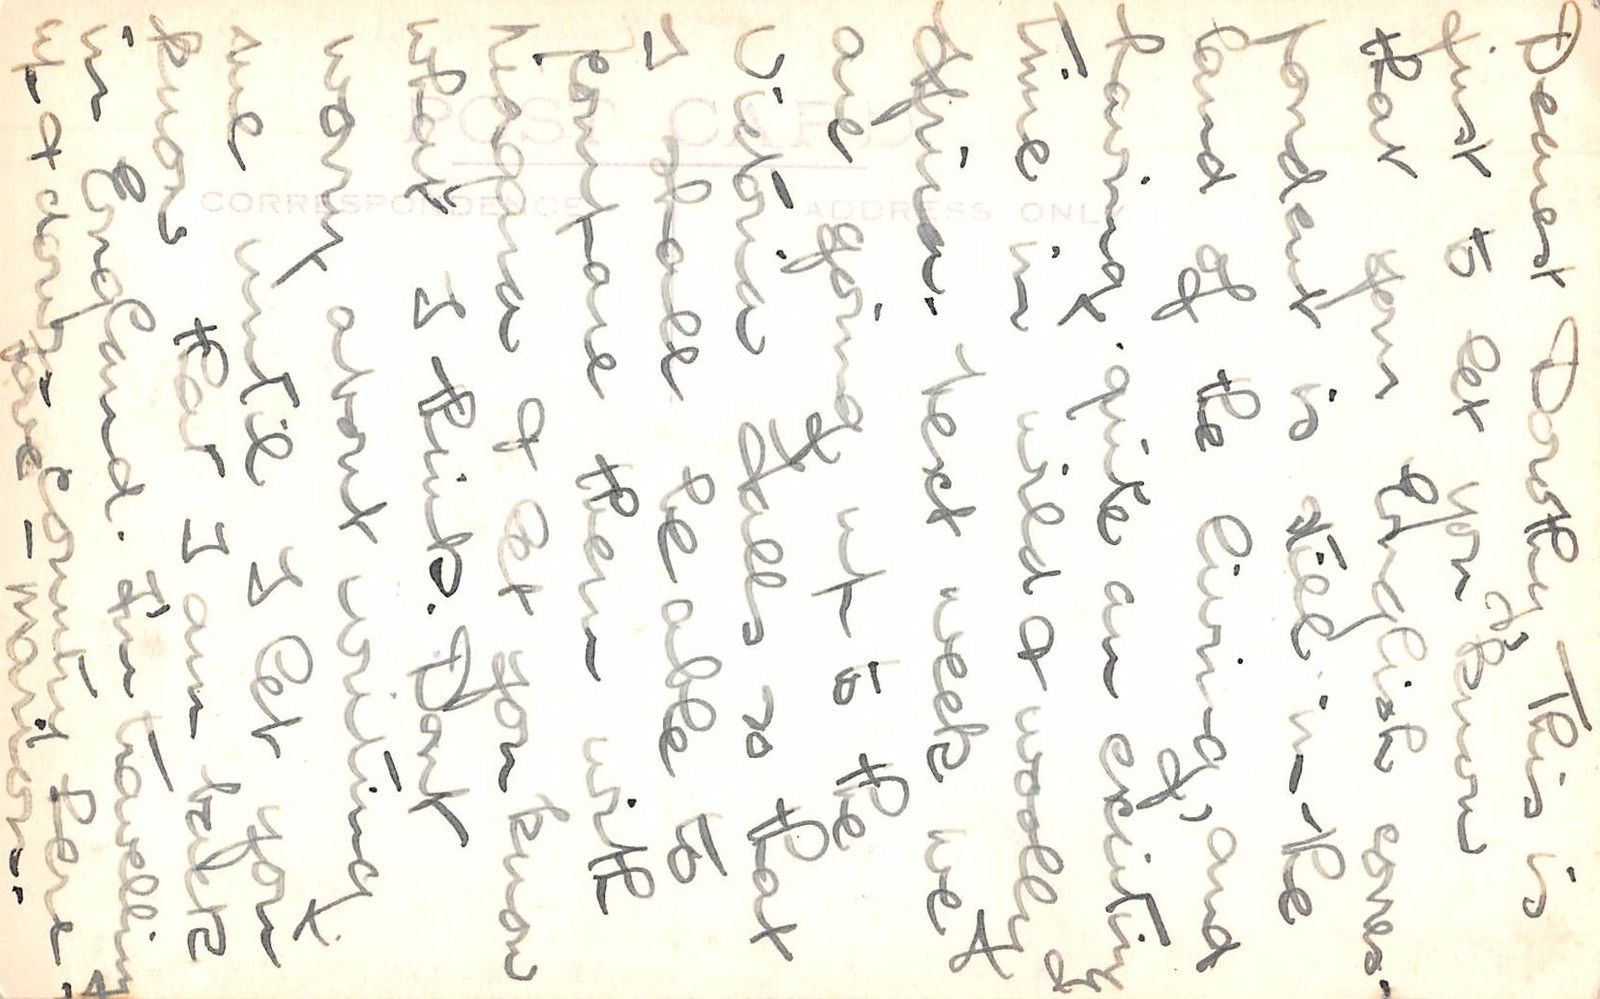 Dearest Dorothy, This is
just to let you know
that your English corres-
pondent is still in the
land of the living, and
having quite an exciting
time in wild & woolly
Africa. Next week we
are going up to the
Victoria Falls so that
I shall be able to
compare them with
Niagara & let you know
what I think. Dont
worry about writing
me until I let you
know that I am back
in England. I'm travelling
up & down country here.
Love - Marion.
POST CARD
CORRESPONDENCE
ADDRESS ONLY